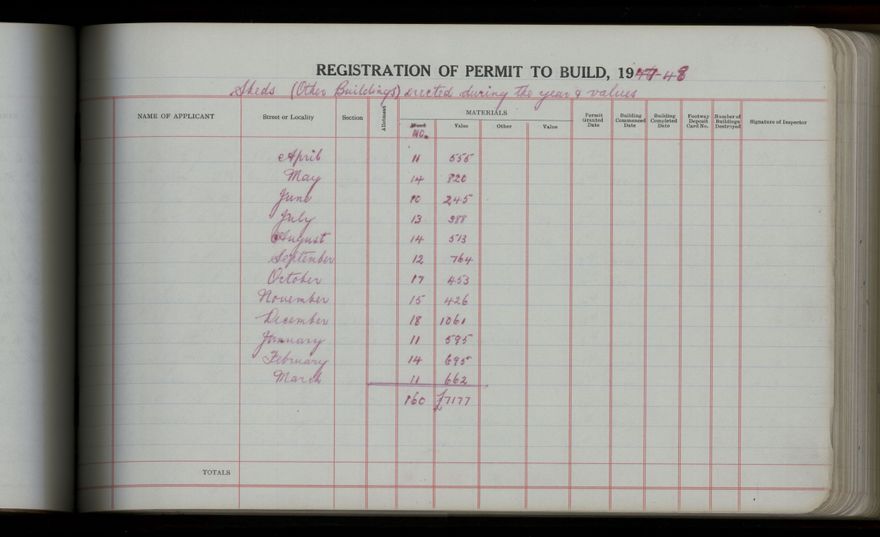 REGISTRATION OF PERMIT TO BUILD, 1947-48
Sheds (Other Buildings) erected during the year & values
NAME OF APPLICANT Street or Locality Section Allotment MATERIALS Permit Granted Date Building Commenced Date Building Completed Date Footway Deposit Card No. Number of Buildings Destroyed Signature of Inspector
Wood Value Other Value
No.
April 11 555
May 14 820
June 10 245
July 13 388
August 14 513
September 12 764
October 17 453
November 15 426
December 18 1061
January 11 595
February 14 695
March 11 662
160 £7177
TOTALS